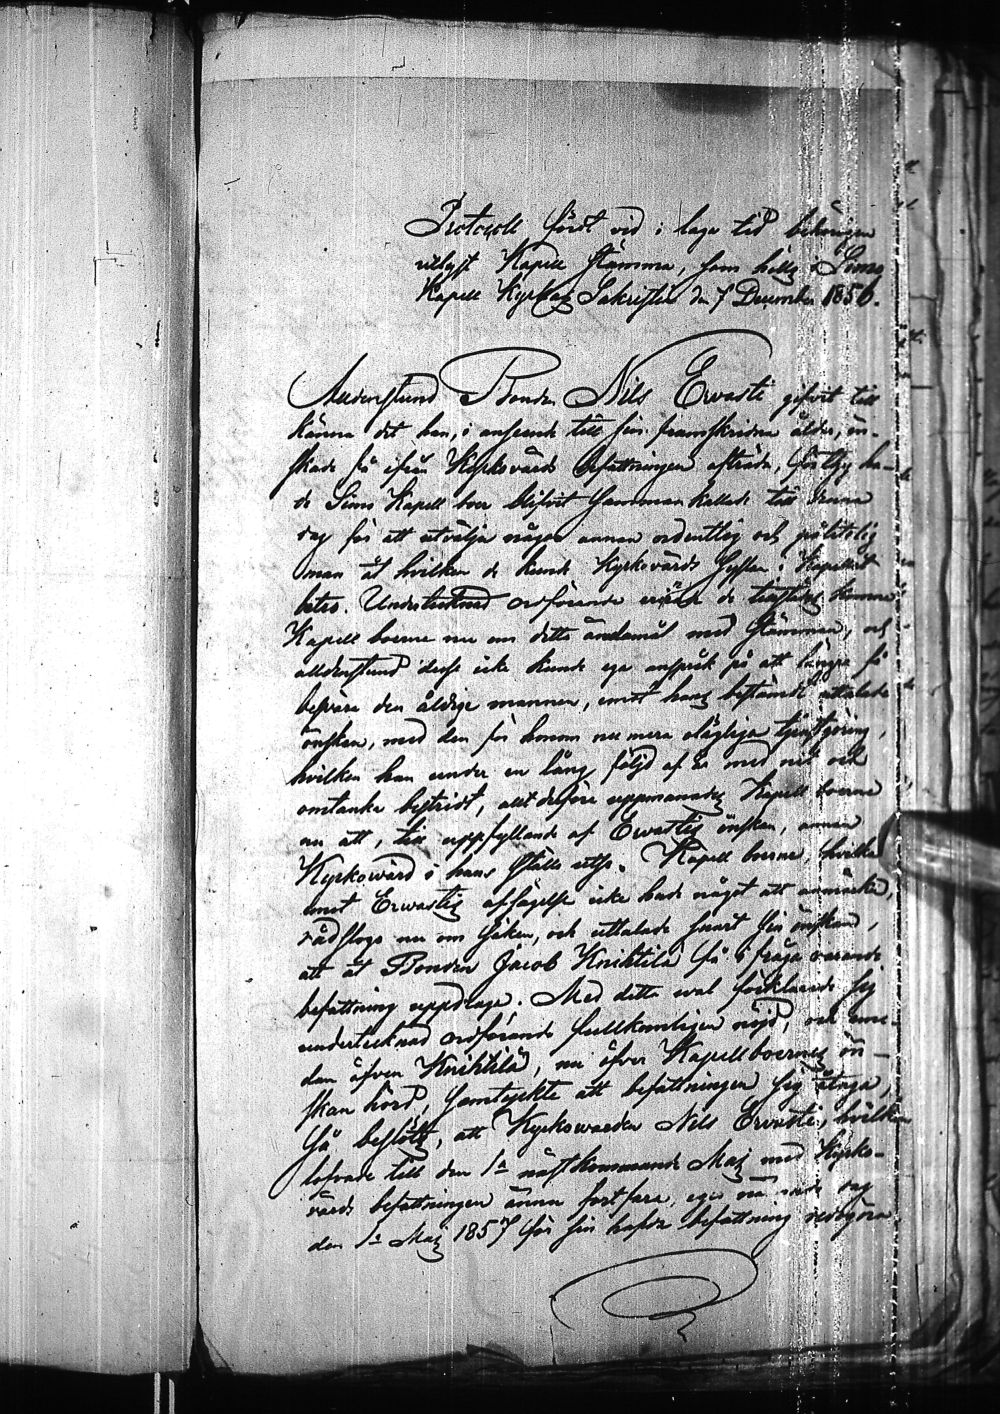 Protocoll fördt vid i laga tid behörigen
utlyst Kapell Stämma, som hölls i Simo
Kapell Kyrkas Sakristia den 7 December 1856.
Alldenstund Bonden Nils Erwasti gifvit till
känna det han, i anseende till sin framskridna ålder, ön-
skade få ifrån Kyrkovärds befattningen afträda, för thy ha-
de Simo Kapell boer blifvit sammankallade till denna
dag för att utvälja någon annan ordentlig och pålitelig
man åt hvilken de kunde Kyrkovärds sysslan i Kapellet
betro. Undertecknad ordförande de tillstädes komne
Kapell boerne nu om detta ändamål med Stämman, och
alldenstund desse icke kunde ega anspråk på att längre få
besvära den åldrige mannen, emot hans bestämdt uttalade
önskan, med den för honom nu mera olägliga tjenstgöring,
hvilken han under en lång följd af år med nit och
omtanka bestridt, allt derföre uppmanades Kapell boerne
nu att, till uppfyllande af Erwastis önskan, annan
Kyrkowärd i hans ställe utse. Kapell boerne, hvilka
emot Erwastis afsägelse icke hade något att anmärka,
rådslogo nu om saken, och uttalade snart sin önskan,
att åt Bonden Jacob Knihtilä få i fråga varande
befattning uppdraga. Med detta wal förklarade sig
undertecknad ordförande fullkomligen nöjd, och eme-
dan äfven Knihtilä, nu öfver Kapellboernes ön-
skan hörd, samtyckte att befattningen sig åtaga,
Så beslöts, att Kyrkowärden Nils Erwasti, hvilken
lofvade till den 1a nästkommande Maj med Kyrko-
värds befattningen ännu fortfara, eger dag
den 1a Maj 1857 för sin hafda befattning redogöra